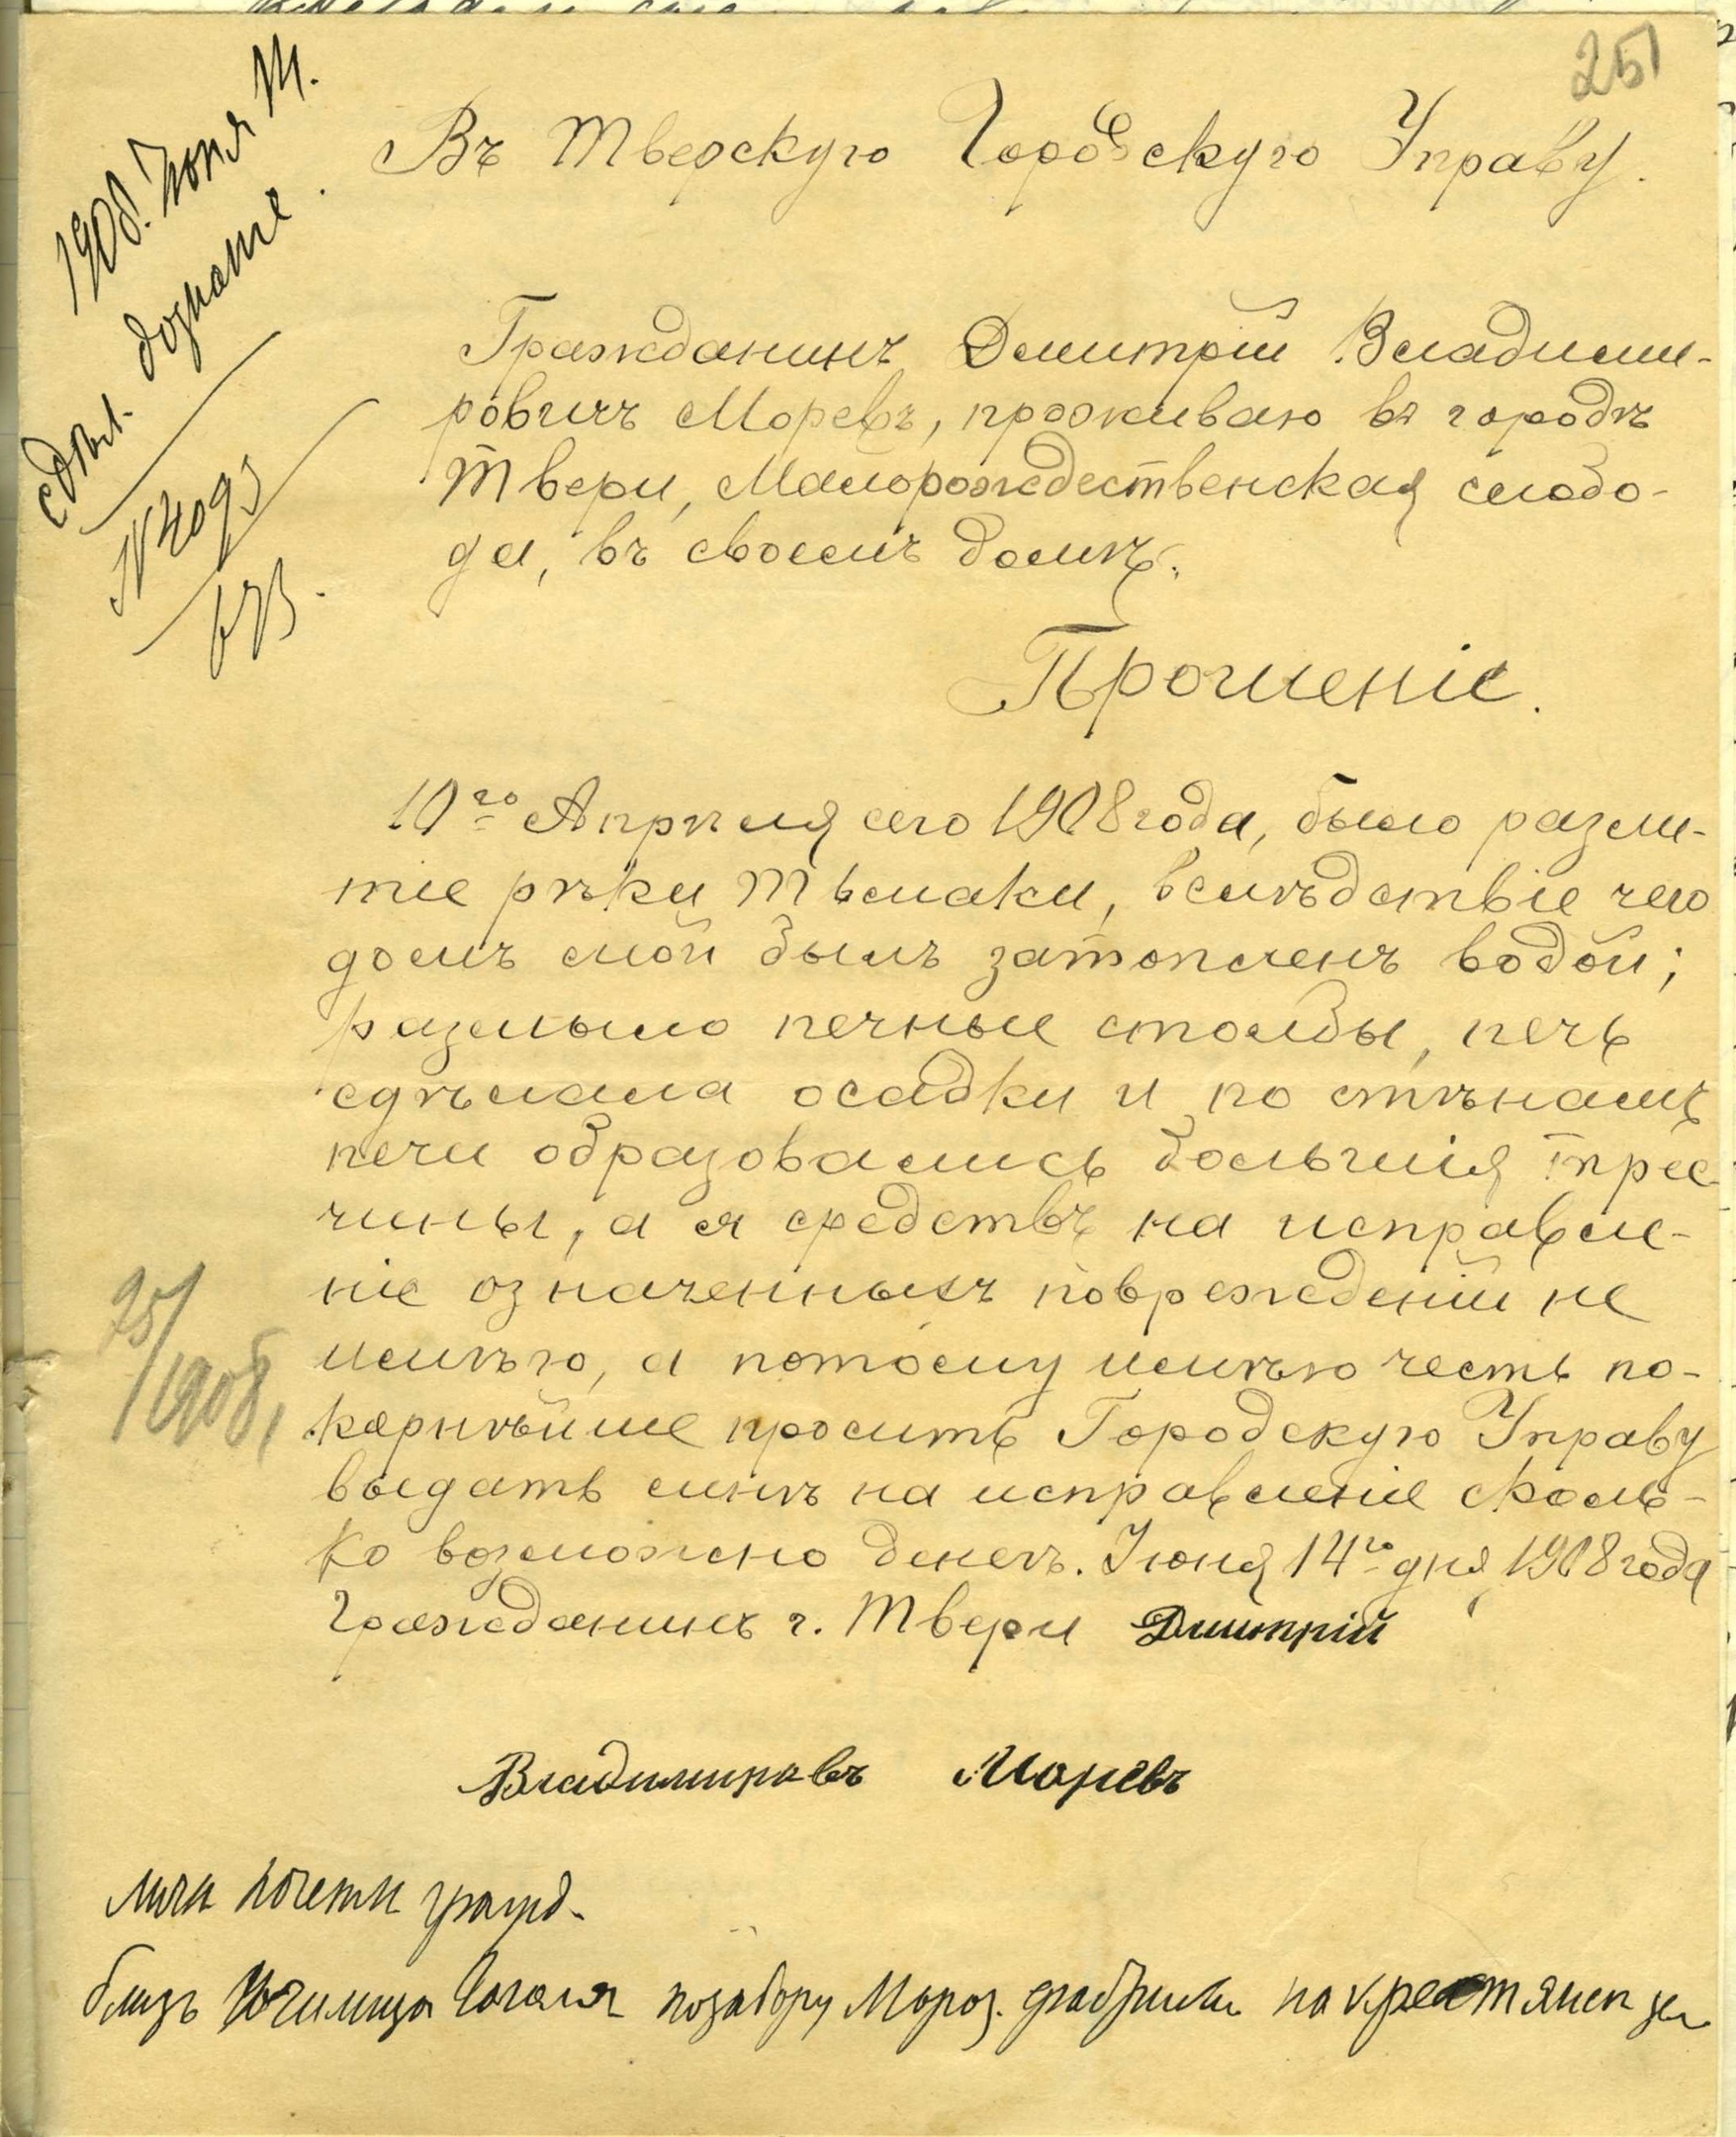 251
Въ Тверскую Городскую Управу.
1908. Іюня 14.
сдѣл. дознаніе.
Гражданинъ Дмитрій Владими-
ровичъ Моревъ, проживаю въ городѣ
Твери, Малорождественская слобо-
да, въ своемъ домѣ.
Прошеніе.
10го Апрѣля сего 1908 года, было разли-
тіе рѣки Тьмаки, вслѣдствіе чего
домъ мой былъ затопленъ водой;
размыло печные столбы, печь
сдѣлала осадки и по стѣнамъ
печи образовались большія тре-
щины, а я средствъ на исправле-
ніе означенныхъ поврежденій не
имѣю, а потому имѣю честь по-
корнѣйше просить Городскую Управу
выдать мнѣ на исправленіе сколь-
ко возможно денегъ. Іюня 14го дня 1908 года
Гражданинъ г. Твери Дмитрій
Владимировъ Моревъ
251/1908,
почетн гражд.
близь Училища Гоголя позабору Мороз. фабрики на крестянск зем